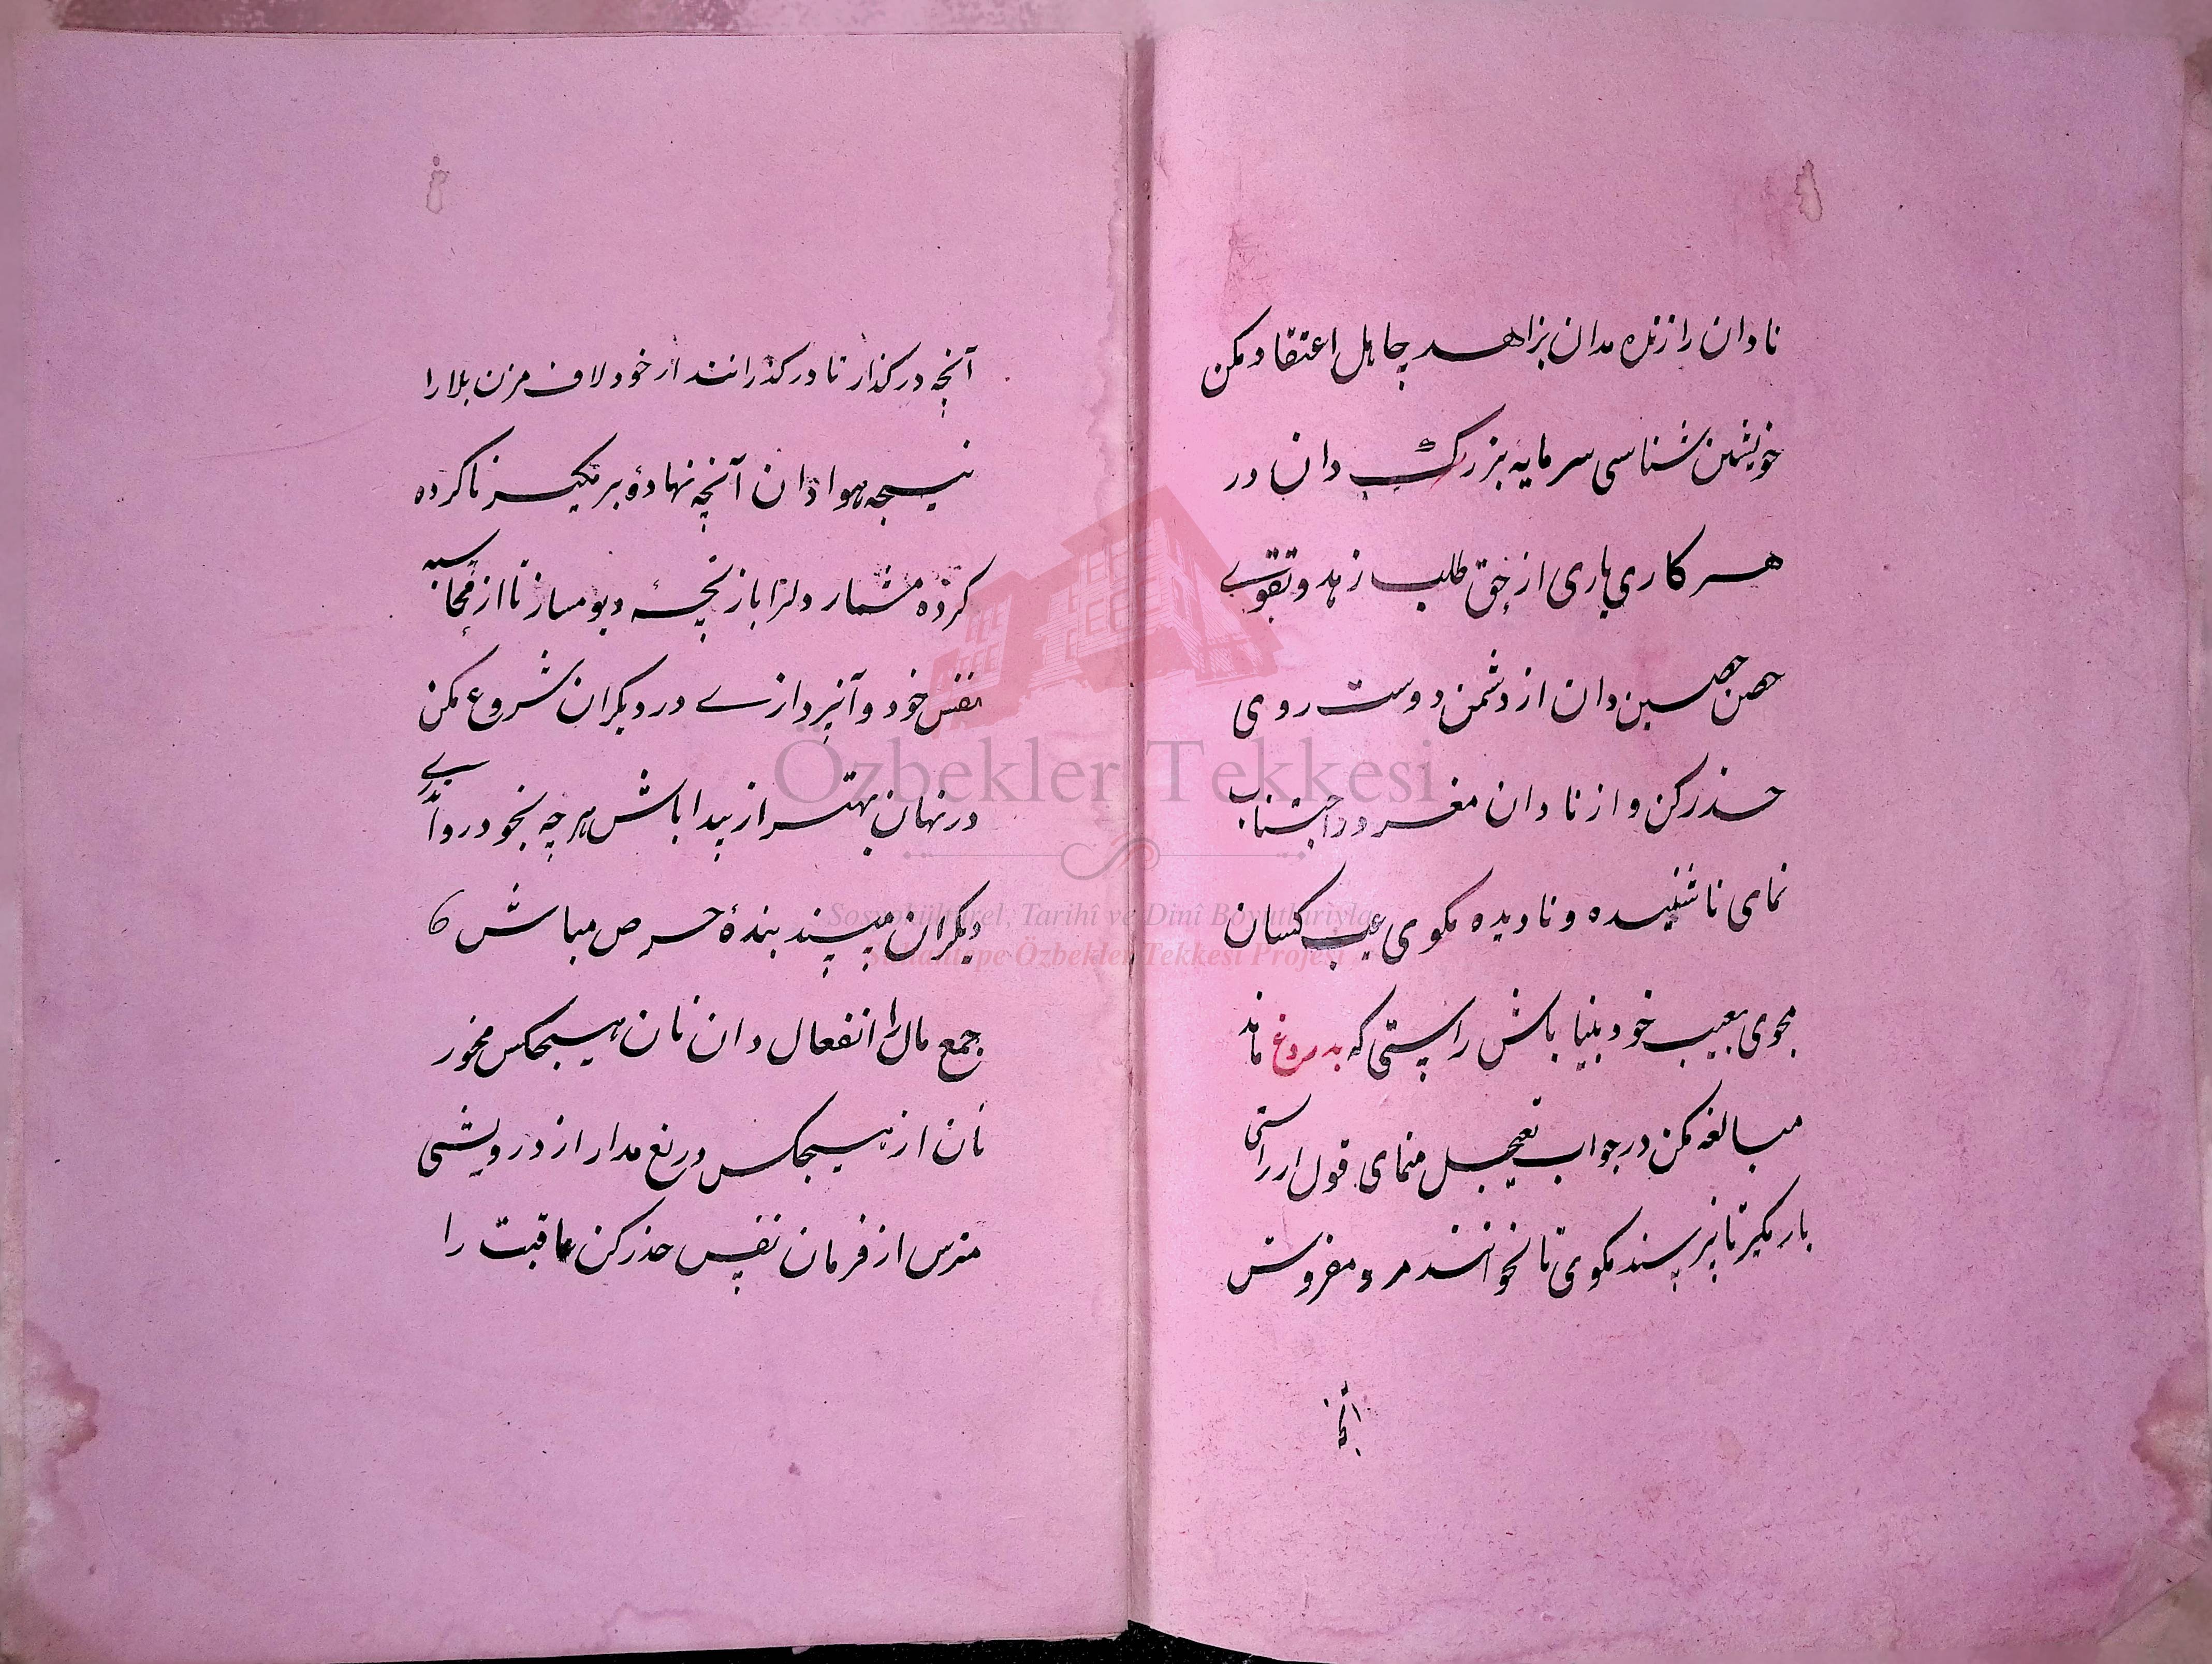 نادان را زنده مدان بزاهد جاهل اعتقاد مکن
خویشتن شناسی سرمایه بزرک دان در
هر کاری یاری از حق طلب زهد و تقوی
حصن حصین دان از دشمن دوست روی
حذر کن و از نادان مغرور اجتناب
نمای ناشنیده و نادیده مکوی عیب کسان
مجوی بعیب خود بینا باش راستی که بدروغ ماند
مبالغه مکن در جواب تعجیل منمای قول از راستی
باز مکیر تا نپرسند مکوی تا نخوانند مرو مفروش
آنچه
آنچه در کذار تا در کذرانند از خود لاف مزن بلا را
نتیجه هوا دان آنچه ننهادۀ بر مکیر ناکرده
کرده مشمار دلرا بازیچۀ دیو مساز تا از محاسبه
نفس خود وا نپردازی در دیکران شروع مکن
در نهان بهتر از پیدا باش هر چه بخود روا نداری
دیکران مپسند بندۀ حرص مباش
جمع مال را انفعال دان نان هیچکس مخور
نان از هیچکس دریغ مدار از درویشی
مترس از فرمان نفس حذر کن عاقبت را
Özbekler Tekkesi
Sosyokültürel, Tarihî ve Dinî Boyutlarıyla
Sultantepe Özbekler Tekkesi Projesi